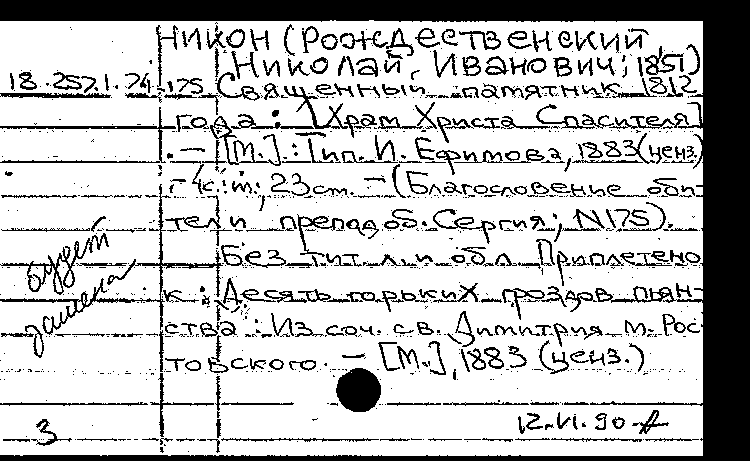 Никон (Рождественский,
Николай, Иванович; 1851)
18.257.1.74-175 Священный памятник 1812
года: [Храм Христа Спасителя]
. — [М.]: Тип. И. Ефимова, 1883 (ценз)
- 4с.: т.; 23 cm. — (Благословение оби-
тели преподоб. Сергия; N175).
Без тит. л. и обл Приплетено
к: Десять горьких гроздов пьян-
ства: Из соч. св. Димитрия м. Рос-
товского. — [М.], 1883 (ценз.)
будет
замена
3
12.VI.90